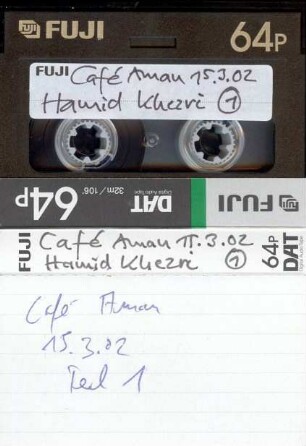 FUJI 64P
FUJI Café Aman 15.3.02
Hamid Khezri ①
64P 32m / 106' DAT Digital Audio Tape FUJI
FUJI Café Aman 15.3.02 64P DAT
Hamid Khezri ①
Café Aman
15.3.02
Teil 1